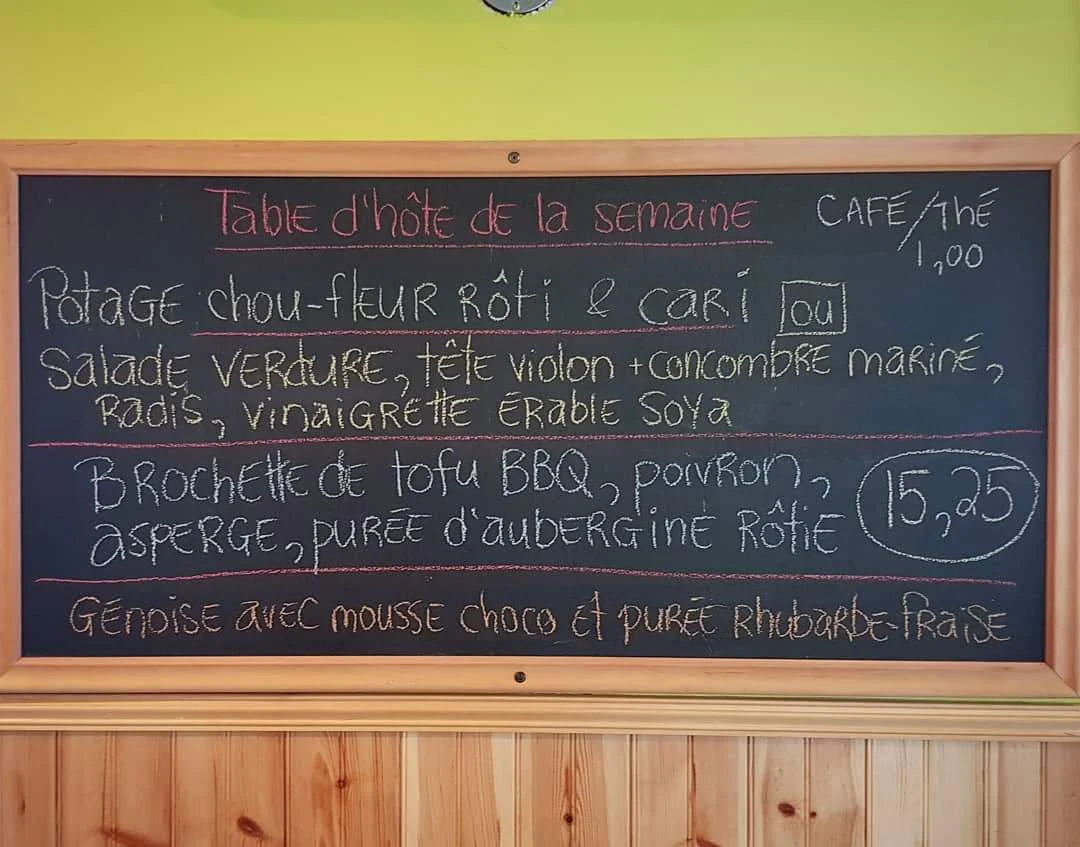 Table d'hôte de la semaine
CAFÉ/Thé
1,00
Potage chou-fleur Rôti & cari ou
Salade verdure, tête violon + concombre mariné,
Radis, vinaigrette érable soya
Brochette de tofu BBQ, poivron,
asperge, purée d'aubergine Rôtie
15,25
Génoise avec mousse choco et purée Rhubarbe-fraise